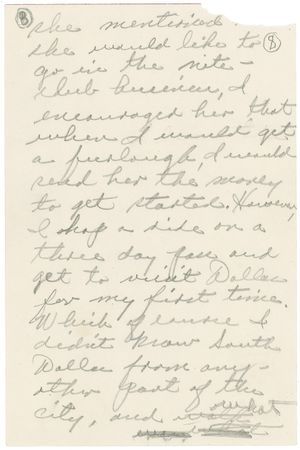 8 she mentioned 8
she would like to
go in the nite-
club business, I
encouraged her that
when I would get
a furlough, I would
send her the money
to get started. However,
I hop a ride on a
three day pass and
get to visit Dallas
for my first time.
Which of course I
didn't know South
Dallas from any-
other part of the
city, and what